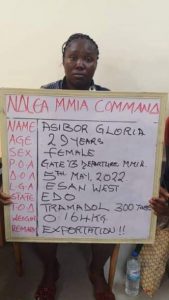 NDLEA MMIA COMMAND
NAME ASIBOR GLORIA
AGE 29 YEARS
SEX FEMALE
P.O.A GATE 73 DEPARTURE MMIA.
D.O.A 5TH MAY, 2022
L.G.A ESAN WEST
STATE EDO
T.O.A TRAMADOL 300 TABS
WEIGHT 0.164KG
REMARK EXPORTATION!!